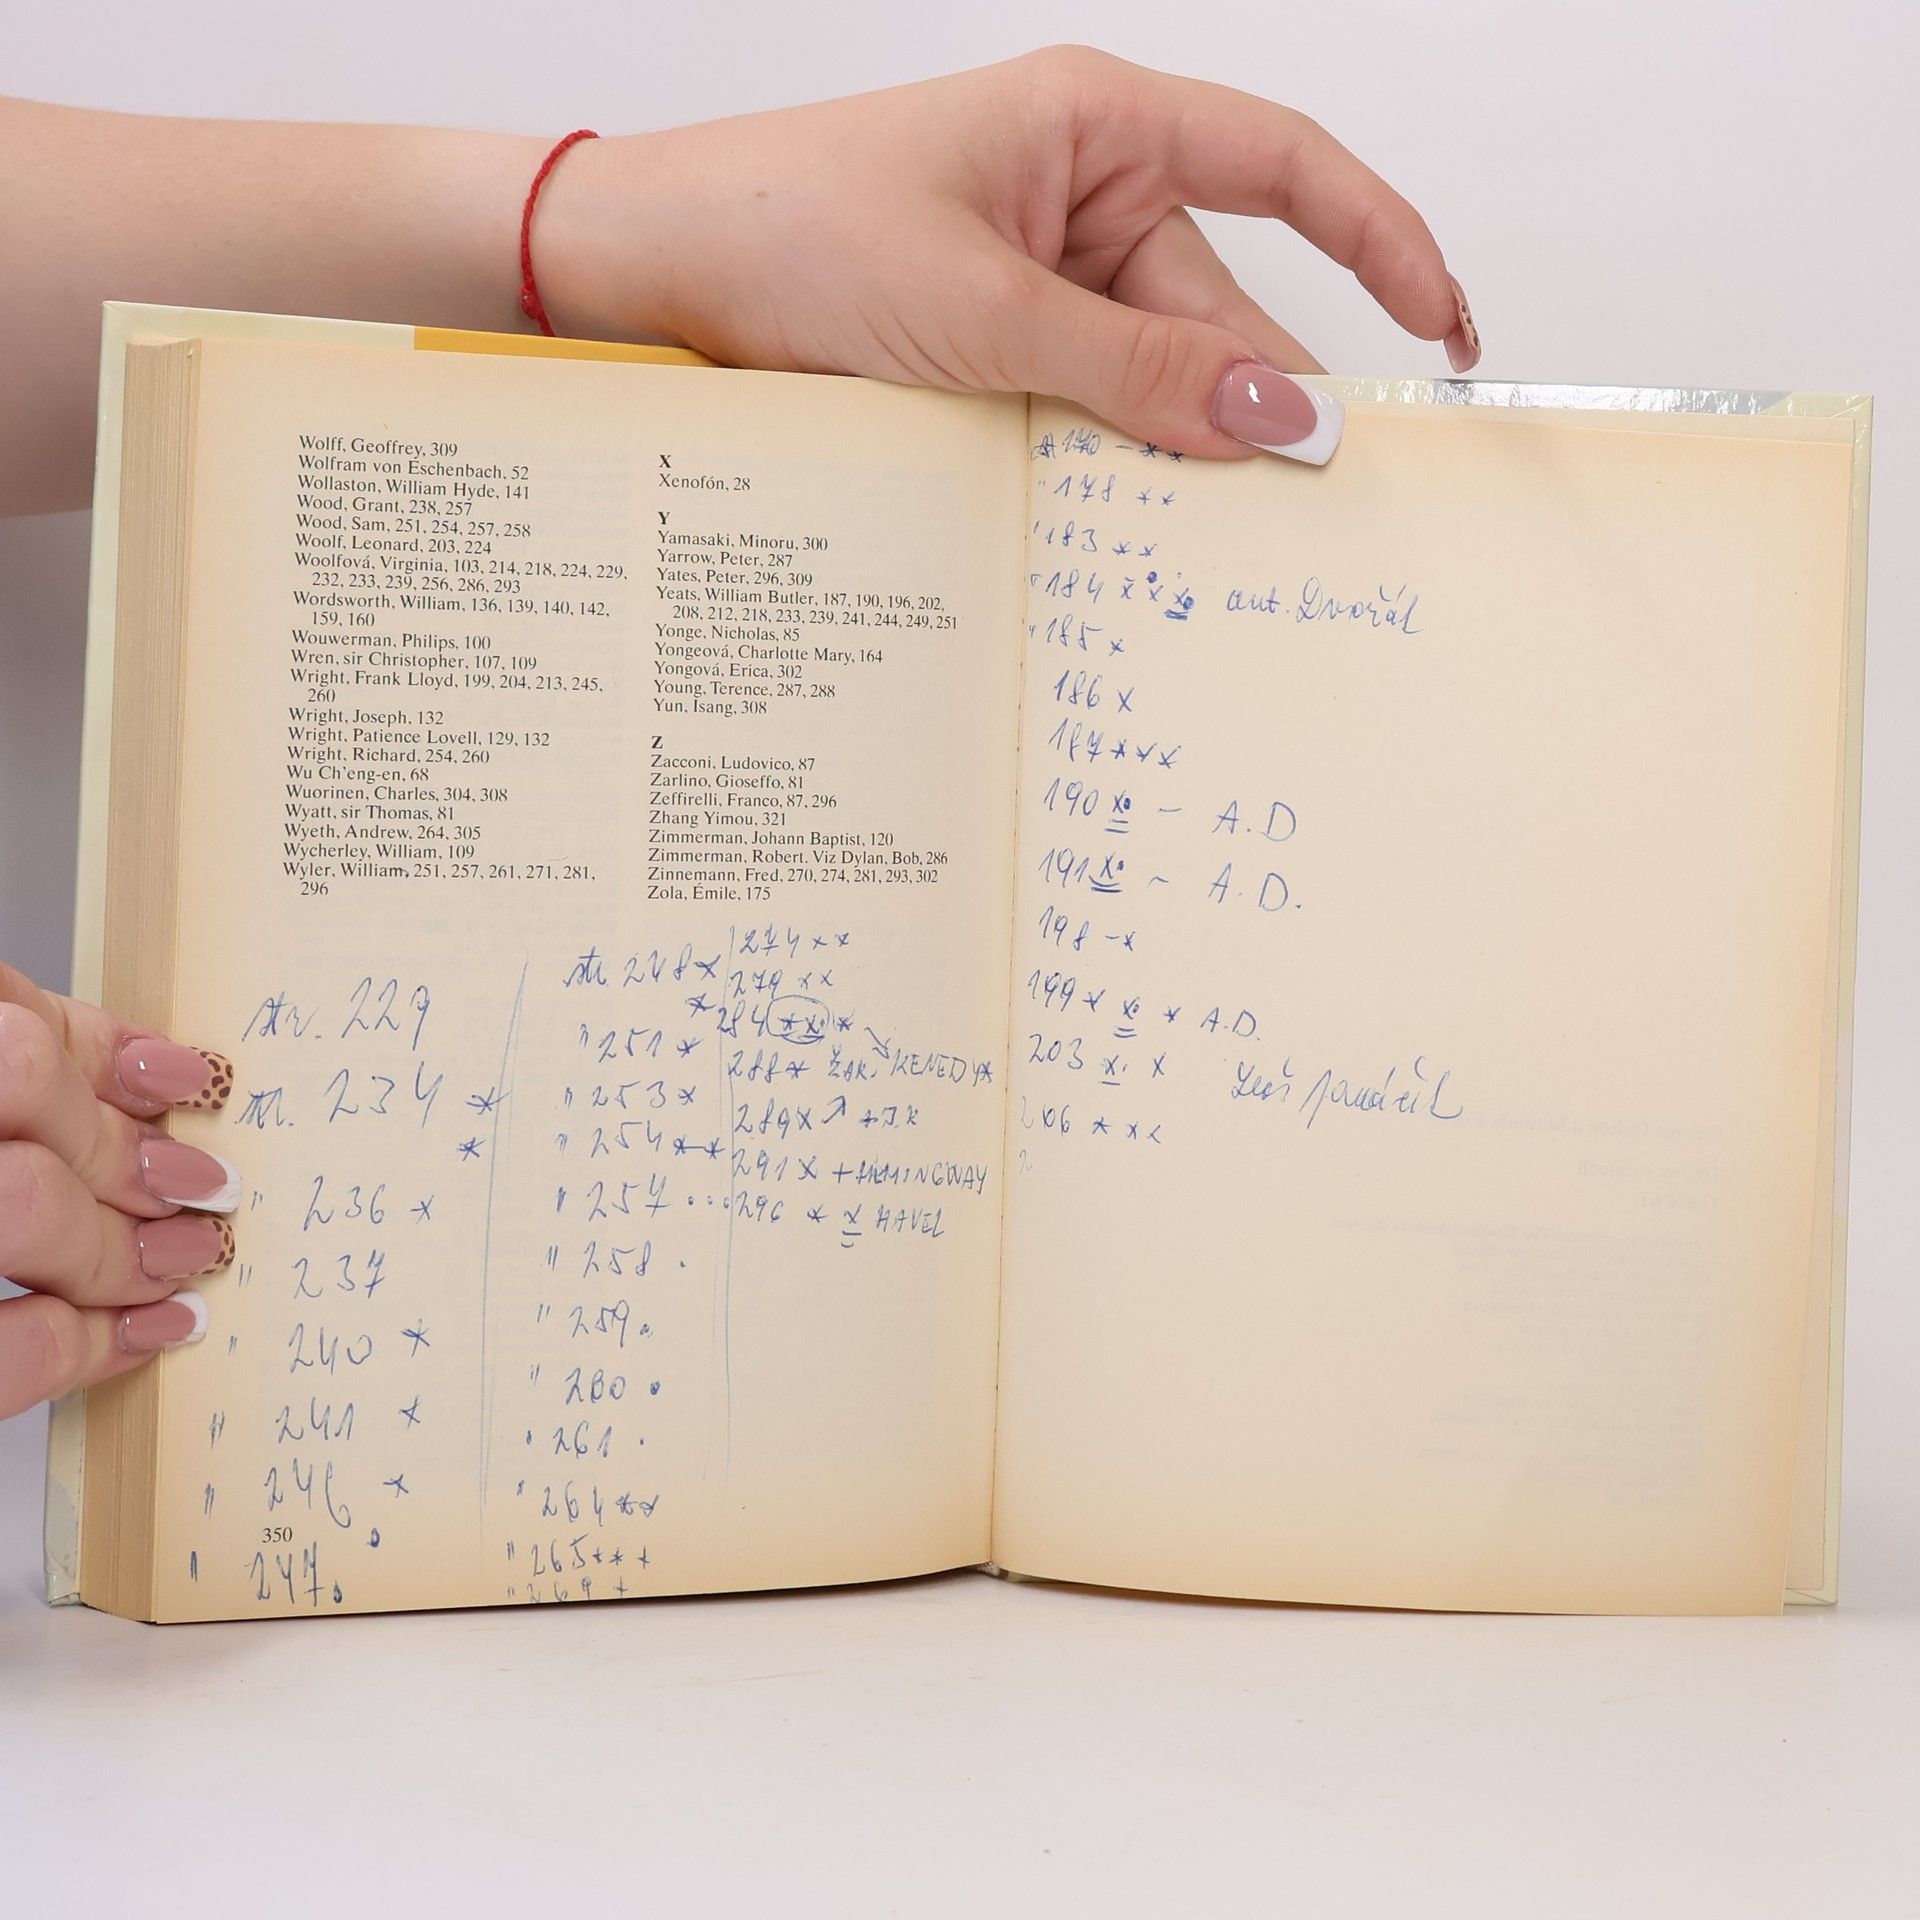 Wolff, Geoffrey, 309
Wolfram von Eschenbach, 52
Wollaston, William Hyde, 141
Wood, Grant, 238, 257
Wood, Sam, 251, 254, 257, 258
Woolf, Leonard, 203, 224
Woolfová, Virginia, 103, 214, 218, 224, 229,
232, 233, 239, 256, 286, 293
Wordsworth, William, 136, 139, 140, 142,
159, 160
Wouwerman, Philips, 100
Wren, sir Christopher, 107, 109
Wright, Frank Lloyd, 199, 204, 213, 245,
260
Wright, Joseph, 132
Wright, Patience Lovell, 129, 132
Wright, Richard, 254, 260
Wu Ch'eng-en, 68
Wuorinen, Charles, 304, 308
Wyatt, sir Thomas, 81
Wyeth, Andrew, 264, 305
Wycherley, William, 109
Wyler, William, 251, 257, 261, 271, 281,
296
X
Xenofón, 28
Y
Yamasaki, Minoru, 300
Yarrow, Peter, 287
Yates, Peter, 296, 309
Yeats, William Butler, 187, 190, 196, 202,
208, 212, 218, 233, 239, 241, 244, 249, 251
Yonge, Nicholas, 85
Yongeová, Charlotte Mary, 164
Yongová, Erica, 302
Young, Terence, 287, 288
Yun, Isang, 308
Z
Zacconi, Ludovico, 87
Zarlino, Gioseffo, 81
Zeffirelli, Franco, 87, 296
Zhang Yimou, 321
Zimmerman, Johann Baptist, 120
Zimmerman, Robert. Viz Dylan, Bob, 286
Zinnemann, Fred, 270, 274, 281, 293, 302
Zola, Émile, 175
str. 229
str. 234 *
*
" 236 *
" 237
" 240 *
" 241 *
" 246 *
350
" 247.
str. 248 *
*
" 251 *
" 253 *
" 254 * *
" 257 . . .
" 258 .
" 259 .
" 260 .
" 261 .
" 264 * *
" 265 * * *
" 269 *
274 x x
279 x x
284 * x. *
288 * ŽAK, KENEDY *
289 x + J.K
291 x + HEMINGWAY
296 * x HAVEL
170 - * *
" 178 * *
" 183 * *
" 184 x x x ant. Dvořák
" 185 *
186 x
187 * * *
190 x. - A.D
191 x. - A.D.
198 - x
199 * x. * A.D.
203 x. x Leoš Janáček
206 * x x
2